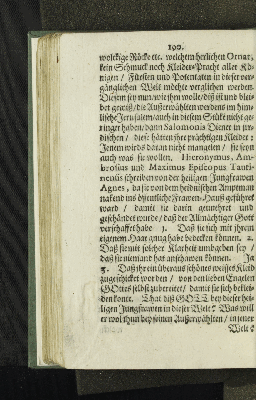 190.
wolckige Röcke etc. welchem herlichen Ornat/
kein Schmuck noch Kleider-Pracht aller Kö-
nigen / Fürsten und Potentaten in dieser ver-
gänglichen Welt möchte verglichen werden.
Diesem sey nun/wie ihm wolle/diß ist und blei-
bet gewiß/die Außerwählten werden im himm-
lische Jerusalem/auch in diesem Stükt nicht ge-
ringer haben/dann Salomonis Diener in jr-
dischen / diese hatten ihre prächtigen Kleider :
Jenem wird daran nicht manglen / sie seyn
auch was sie wollen. Hieronymus, Am-
brosius und Maximus Episcopus Tauri-
nensis schreiben von der heiligen Jungfrawen
Agnes, da sie von dem heidnischen Amptman
nakend ins öffentliche Frawen-Hauß geführet
ward / damit sie darin geunehret und
geschändet wurde/daß der Allmächtiger Gott
verschaffet habe 1. Daß sie sich mit ihrem
eigenem Haar gnug habe bedecken können. 2.
Daß sie mit solcher Klarheit umbgeben sey /
daß sie niemand hat anschawen können. Ja
3. Daß ihr ein überaus schönes weisses Kleid
zugeschicket worden / von den lieben Engelen
GOttes selbst zubereitet / damit sie sich beklei-
den konte. That diß GOTT bey dieser hei-
ligen Jungfrawen in dieser Welt? Was will
er wol thun bey seinen Außerwählten / in jener
Welt?